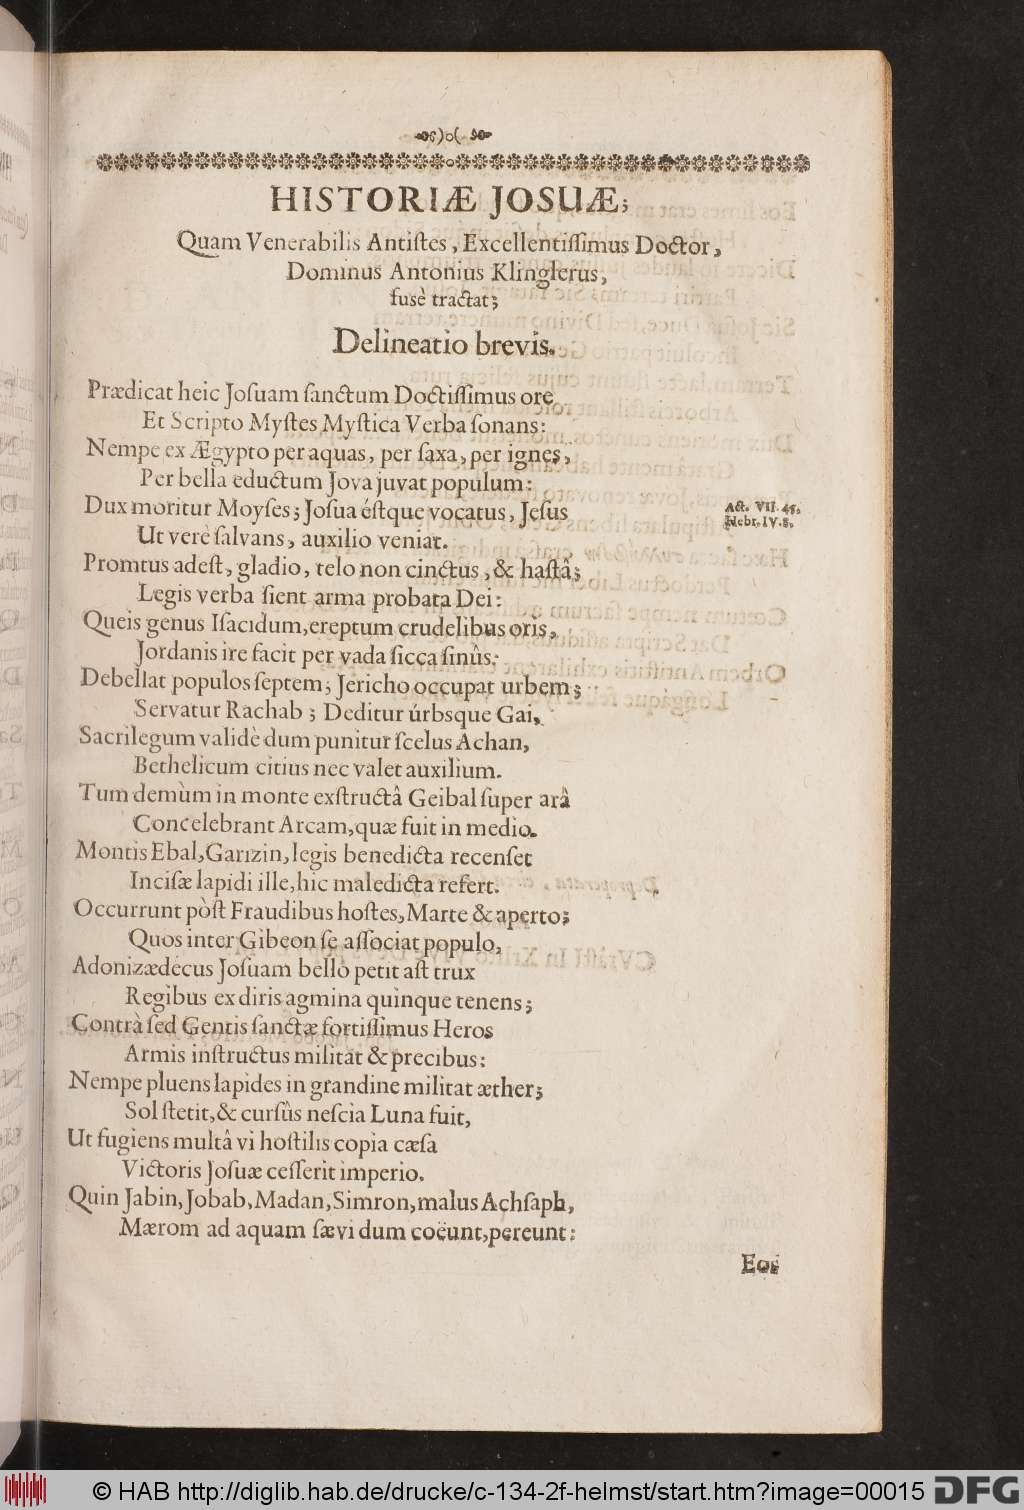 HISTORIÆ JOSUÆ;
Quam Venerabilis Antiſtes, Excellentiſſimus Doctor,
Dominus Antonius Klinglerus,
fusè tractat;
Delineatio brevis.
Prædicat heic Joſuam ſanctum Doctiſſimus ore
Et Scripto Myſtes Myſtica Verba ſonans:
Nempe ex Ægypto per aquas, per ſaxa, per ignes,
Per bella eductum Jova juvat populum:
Dux moritur Moyſes; Joſua éſtque vocatus, Jeſus
Act. VII. 45.
Hebr. IV. 8.
Ut verè ſalvans, auxilio veniat.
Promtus adeſt, gladio, telo non cinctus, & haſtâ;
Legis verba ſient arma probata Dei:
Queis genus Iſacidum, ereptum crudelibus orîs,
Jordanis ire facit per vada ſicca ſinûs:
Debellat populos ſeptem; Jericho occupat urbem;
Servatur Rachab; Deditur úrbsque Gai,
Sacrilegum validè dum punitur ſcelus Achan,
Bethelicum citius nec valet auxilium.
Tum demùm in monte exſtructâ Geibal ſuper arâ
Concelebrant Arcam, quæ fuit in medio.
Montis Ebal, Garizin, legis benedicta recenſet
Inciſæ lapidi ille, hic maledicta refert.
Occurrunt pòſt Fraudibus hoſtes, Marte & aperto;
Quos inter Gibeon ſe aſſociat populo,
Adonizædecus Joſuam bello petit aſt trux
Regibus ex diris agmina quinque tenens;
Contrà ſed Gentis ſanctæ fortiſſimus Heros
Armis inſtructus militat & precibus:
Nempe pluens lapides in grandine militat æther;
Sol ſtetit, & curſûs neſcia Luna fuit,
Ut fugiens multâ vi hoſtilis copia cæſa
Victoris Joſuæ ceſſerit imperio.
Quin Jabin, Jobab, Madan, Simron, malus Achſaph,
Mærom ad aquam ſævi dum coëunt, pereunt:
Eos
© HAB http://diglib.hab.de/drucke/c-134-2f-helmst/start.htm?image=00015
DFG